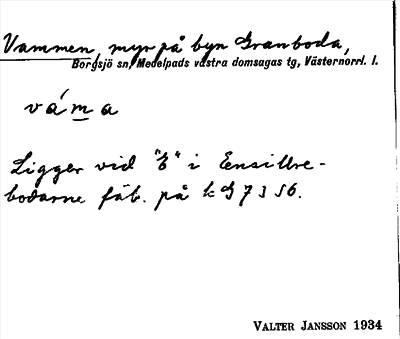 Vammen, myr på byn Granboda,
Borgsjö sn, Medelpads västra domsagas tg, Västernorrl. l.
váma
Ligger vid "E" i Ensillre-
bodarne fäb. på k G 7 3 56.
VALTER JANSSON 1934